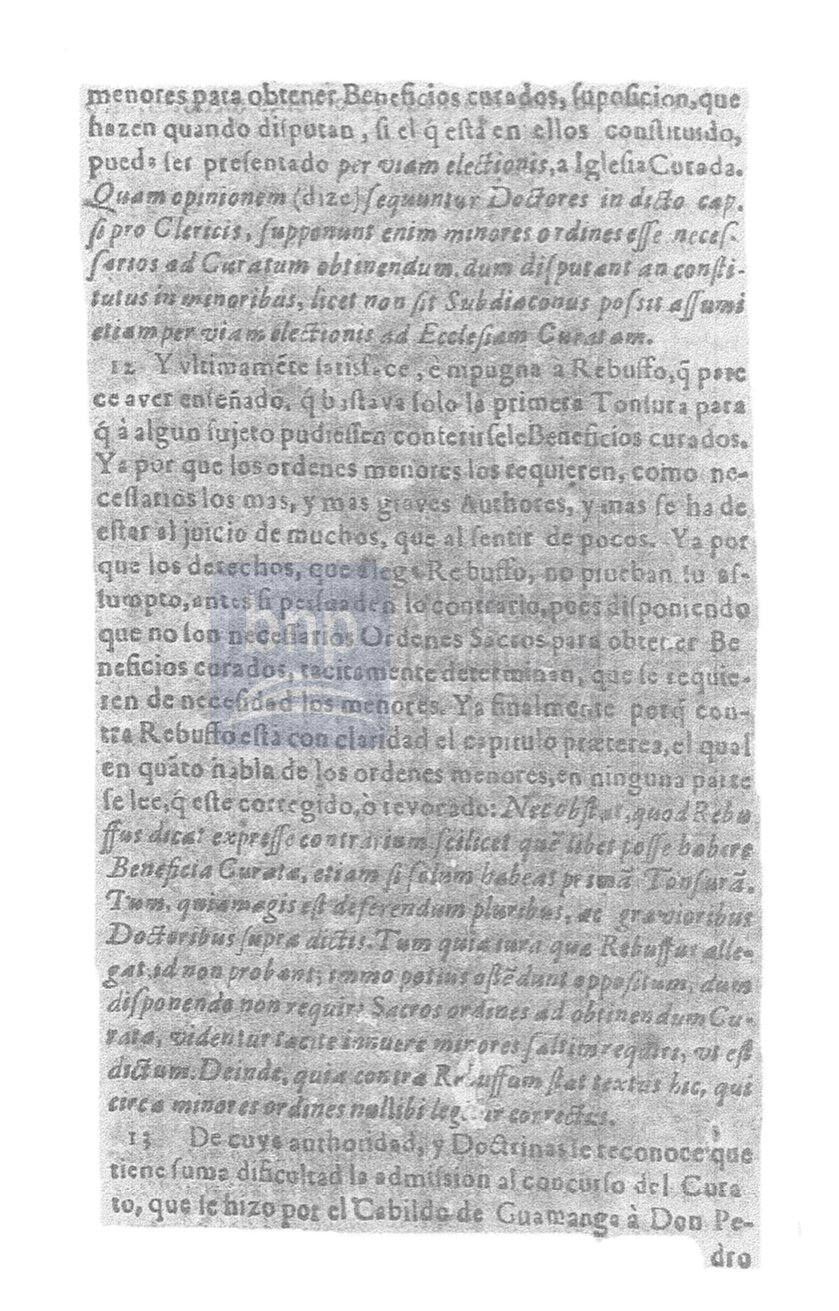 menores para obtener Beneficios curados, suposicion, que
hazen quando disputan, si el q̃ està en ellos constituido,
pueda ser presentado per viam electionis, a Iglesia Curada.
Quam opinionem (dize) sequuntur Doctores in dicto cap.
si pro Clericis, supponunt enim minores ordines esse neces-
sarios ad Curatum obtinendum, dum disputant an consti-
tutus in minoribus, licet non sit Subdiaconus possit assumi
etiam per viam electionis ad Ecclesiam Curatam.
12 Y vltimamẽte satisface, è mpugna à Rebuffo, q̃ pare
ce aver enseñado, q̃ bastava solo la primera Tonsura para
q̃ à algun sujeto pudiessen conferirsele Beneficios curados.
Ya por que los ordenes menores los requieren, como ne-
cessarios los mas, y mas graves Authores, y mas se ha de
estar al juicio de muchos, que al sentir de pocos. Ya por
que los derechos, que alega Rebuffo, no prueban su as-
sumpto, antes si persuaden lo contrario, pues disponiendo
que no son necessarios Ordenes Sacros para obtener Be
neficios curados, tacitamente determinan, que se requie-
ren de necesidad los menores. Ya finalmente porq̃ con-
tra Rebuffo està con claridad el capitulo præterea, el qual
en quãto habla de los ordenes menores, en ninguna parte
se lee, q̃ este corregido, ò revocado: Nec obstat, quod Rebu
ffus dicat expresse contrarium scilicet quẽ libet posse habere
Beneficia Curata, etiam si solum habeat primã Tonsurã.
Tum, quia magis est deferendum pluribus, ac gravioribus
Doctoribus supra dictis. Tum quia iura quæ Rebuffus alle-
gat, id non probant; immo potius ostẽdunt oppositum, dum
disponendo non requiri Sacros ordines ad obtinendum Cu-
rata, videntur tacite innuere minores saltim requiri, vt est
dictum. Deinde, quia contra Rebuffum stat textus hic, qui
circa minores ordines nullibi legitur correctus.
13 De cuya authoridad, y Doctrinas se reconoce que
tiene suma dificultad la admission al concurso del Cura
to, que se hizo por el Cabildo de Guamanga à Don Pe-
dro
bnp